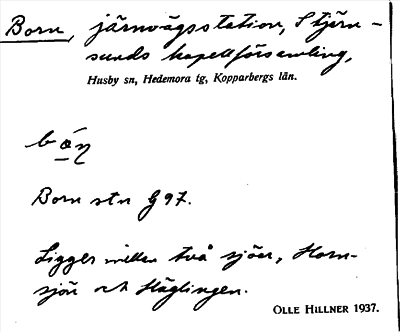 Born, järnvägsstation, Stjärn-
sunds kapellförsamling,
Husby sn, Hedemora tg, Kopparbergs län.
Born stn G 97.
Ligger mellan två sjöar, Horn-
sjön och Häglingen.
OLLE HILLNER 1937.